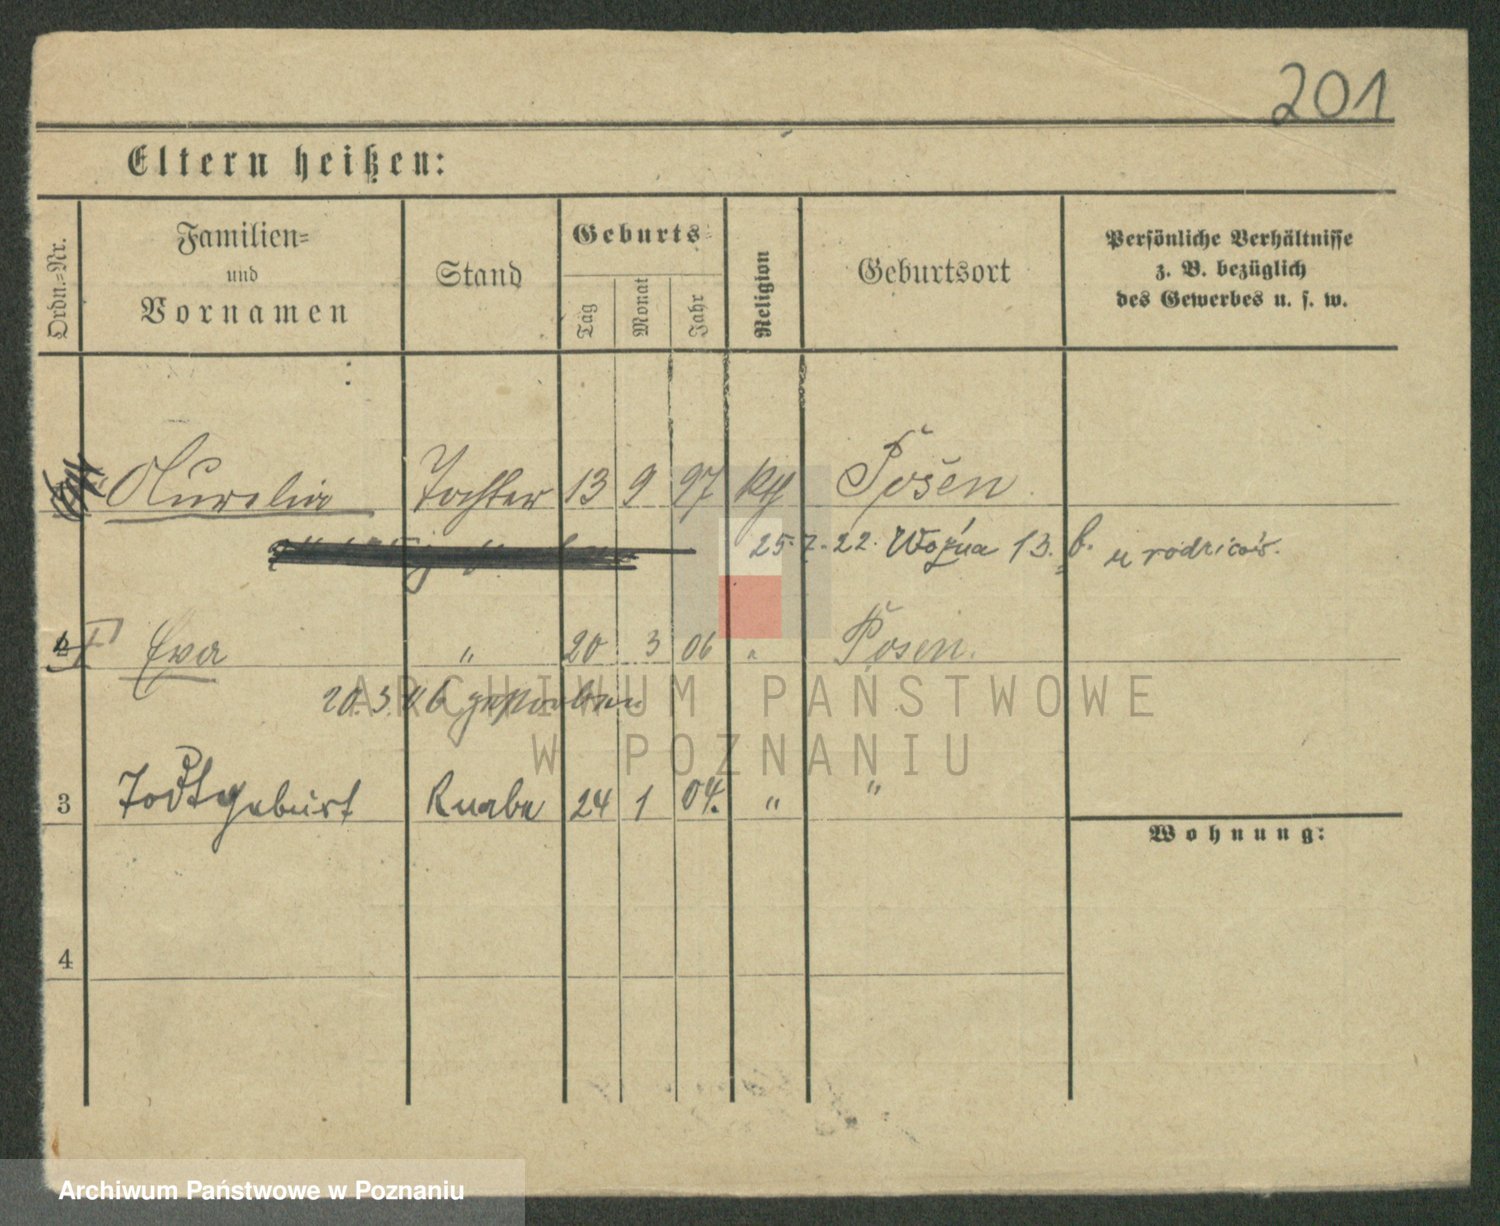 201
Eltern heißen:
Ordn.-Nr.
Familien-
und
Vornamen
Stand
Geburts-
Tag
Monat
Jahr
Religion
Geburtsort
Persönliche Verhältnisse
z. B. bezüglich
des Gewerbes u. s. w.
Aurelia Tochter 13 9 97 kth Posen
25.7.22. Woźna 13. b. u rodziców.
2 Eva " 20 3 06 " Posen.
20.3.06 gestorben
3 Todtgeburt Knabe 24 1 04. " "
Wohnung:
4
ARCHIWUM PAŃSTWOWE
W POZNANIU
Archiwum Państwowe w Poznaniu